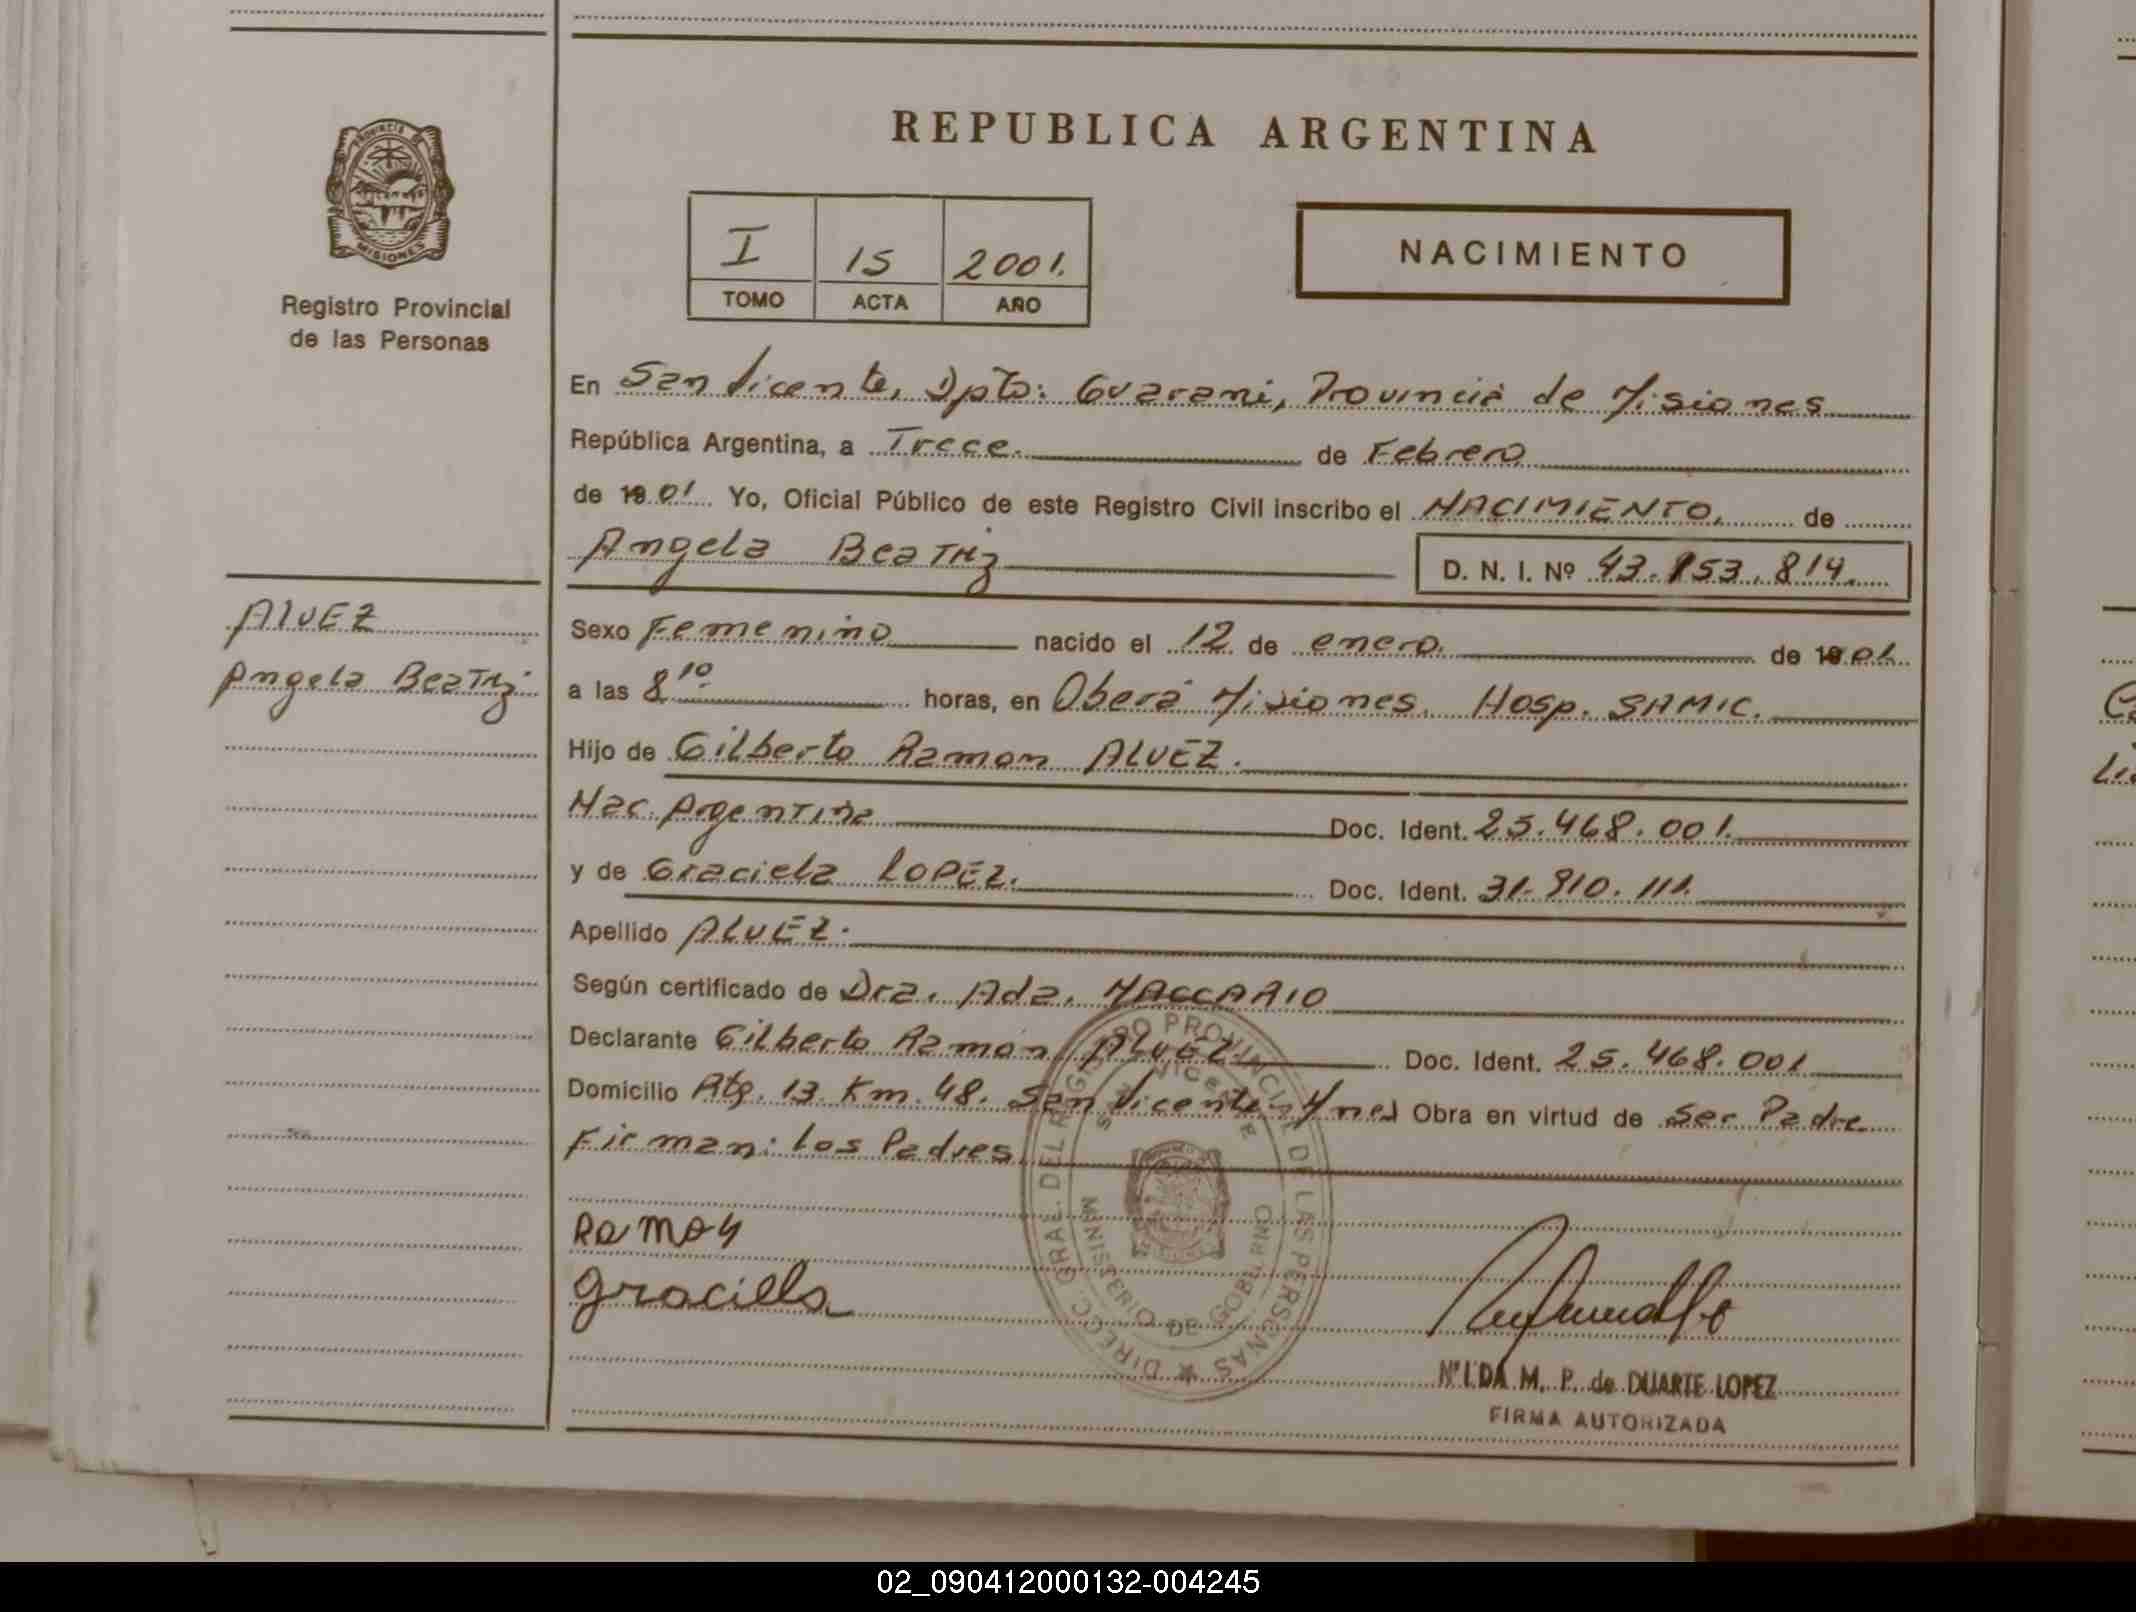 REPUBLICA ARGENTINA
PROVINCIA DE
MISIONES
Registro Provincial
de las Personas
I 15 2001.
TOMO ACTA AÑO
NACIMIENTO
En San Vicente, Dpto: Guarani, Provincia de Misiones
República Argentina, a Trece. de Febrero
de 19 01 Yo, Oficial Público de este Registro Civil inscribo el NACIMIENTO, de
Angela Beatriz D. N. I. Nº 43.153.814.
ALVEZ
Angela Beatriz
Sexo Femenino nacido el 12 de enero. de 19 01.
a las 8 10 horas, en Oberá Misiones. Hosp. SAMIC.
Hijo de Gilberto Ramon ALVEZ.
Nac. Argentina Doc. Ident. 25.468.001.
y de Graciela LOPEZ. Doc. Ident. 31.910.111.
Apellido ALVEZ.
Según certificado de Dra. Ada. MACCARIO
Declarante Gilberto Ramon ALVEZ Doc. Ident. 25.468.001
Domicilio Rta. 13 Km. 48. San Vicente Mnes Obra en virtud de Ser Padre
Firman: los Padres
Ramon
Graciela
DIRECC. GRAL. DEL REGISTRO PROVINCIAL DE LAS PERSONAS
SAN VICENTE
MINISTERIO DE GOBIERNO
NILDA M. P. de DUARTE LOPEZ
FIRMA AUTORIZADA
02_090412000132-004245